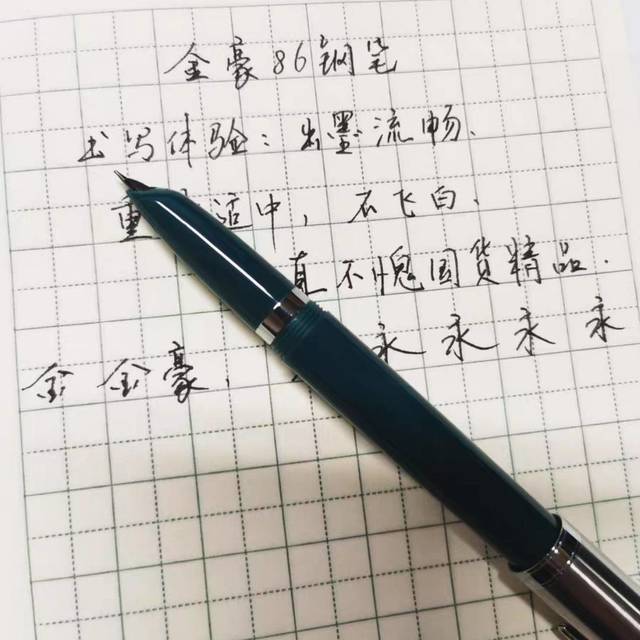 金豪86钢笔
书写体验:出墨流畅.
重 适中,不飞白、
真不愧国货精品.
金 金豪, 永 永 永 永